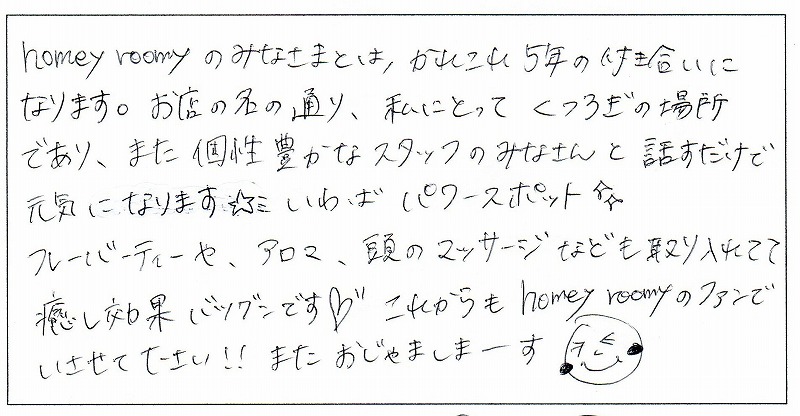 homey roomy のみなさまとは、かれこれ 5年の付き合いに
なります。お店の名の通り、私にとって くつろぎの場所
であり、また 個性豊かなスタッフのみなさんと 話すだけで
元気になります☆ミ いわば パワースポット
フレーバーティーや、アロマ、頭のマッサージなども取り入れてて
癒し効果バツグンです♡ これからも homey roomyのファンで
いさせて下さい!! また おじゃましまーす